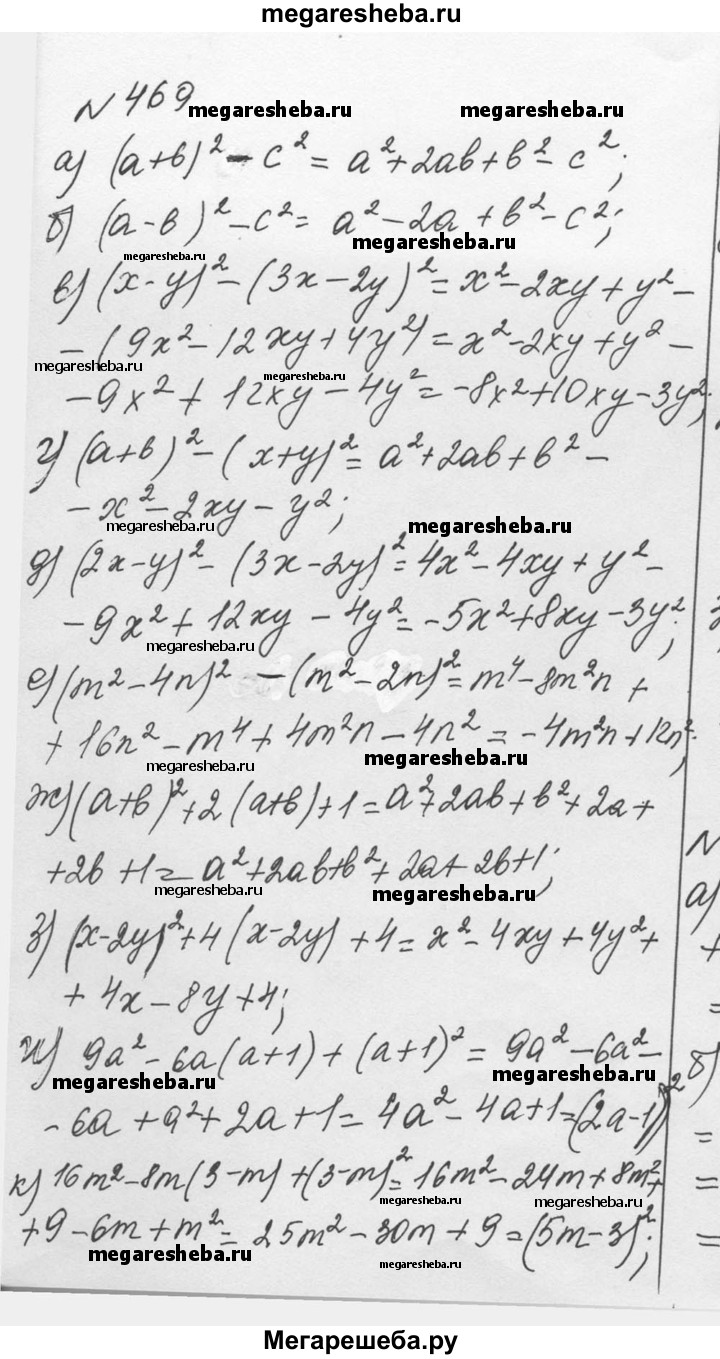 megaresheba.ru
№ 469
megaresheba.ru megaresheba.ru
а) (a+b)² - c² = a²+2ab+b²-c²;
б) (a-b)² - c² = a²-2a+b²-c²;
megaresheba.ru
megaresheba.ru
в) (x-y)² - (3x-2y)² = x²-2xy+y²-
-(9x²-12xy+4y²) = x²-2xy+y²-
megaresheba.ru
megaresheba.ru
-9x²+12xy-4y² = -8x²+10xy-3y²;
г) (a+b)² - (x+y)² = a²+2ab+b²-
-x²-2xy-y²;
megaresheba.ru megaresheba.ru
д) (2x-y)² - (3x-2y)² = 4x²-4xy+y²-
-9x²+12xy-4y² = -5x²+8xy-3y²;
megaresheba.ru
е) (m²-4n)² - (m²-2n)² = m⁴-8m²n+
+16n²-m⁴+4m²n-4n² = -4m²n+12n²;
megaresheba.ru megaresheba.ru
ж) (a+b)²+2(a+b)+1 = a²+2ab+b²+2a+
+2b+1 = a²+2ab+b²+2a+2b+1;
megaresheba.ru megaresheba.ru
з) (x-2y)²+4(x-2y)+4 = x²-4xy+4y²+
+4x-8y+4;
и) 9a²-6a(a+1)+(a+1)² = 9a²-6a²-
megaresheba.ru megaresheba.ru
-6a+a²+2a+1 = 4a²-4a+1 = (2a-1)²
к) 16m²-8m(3-m)+(3-m)² = 16m²-24m+8m²+
megaresheba.ru megaresheba.ru
+9-6m+m² = 25m²-30m+9 = (5m-3)²;
megaresheba.ru megaresheba.ru
N
а)
+
=
б)
=
=
=
Мегарешеба.ру